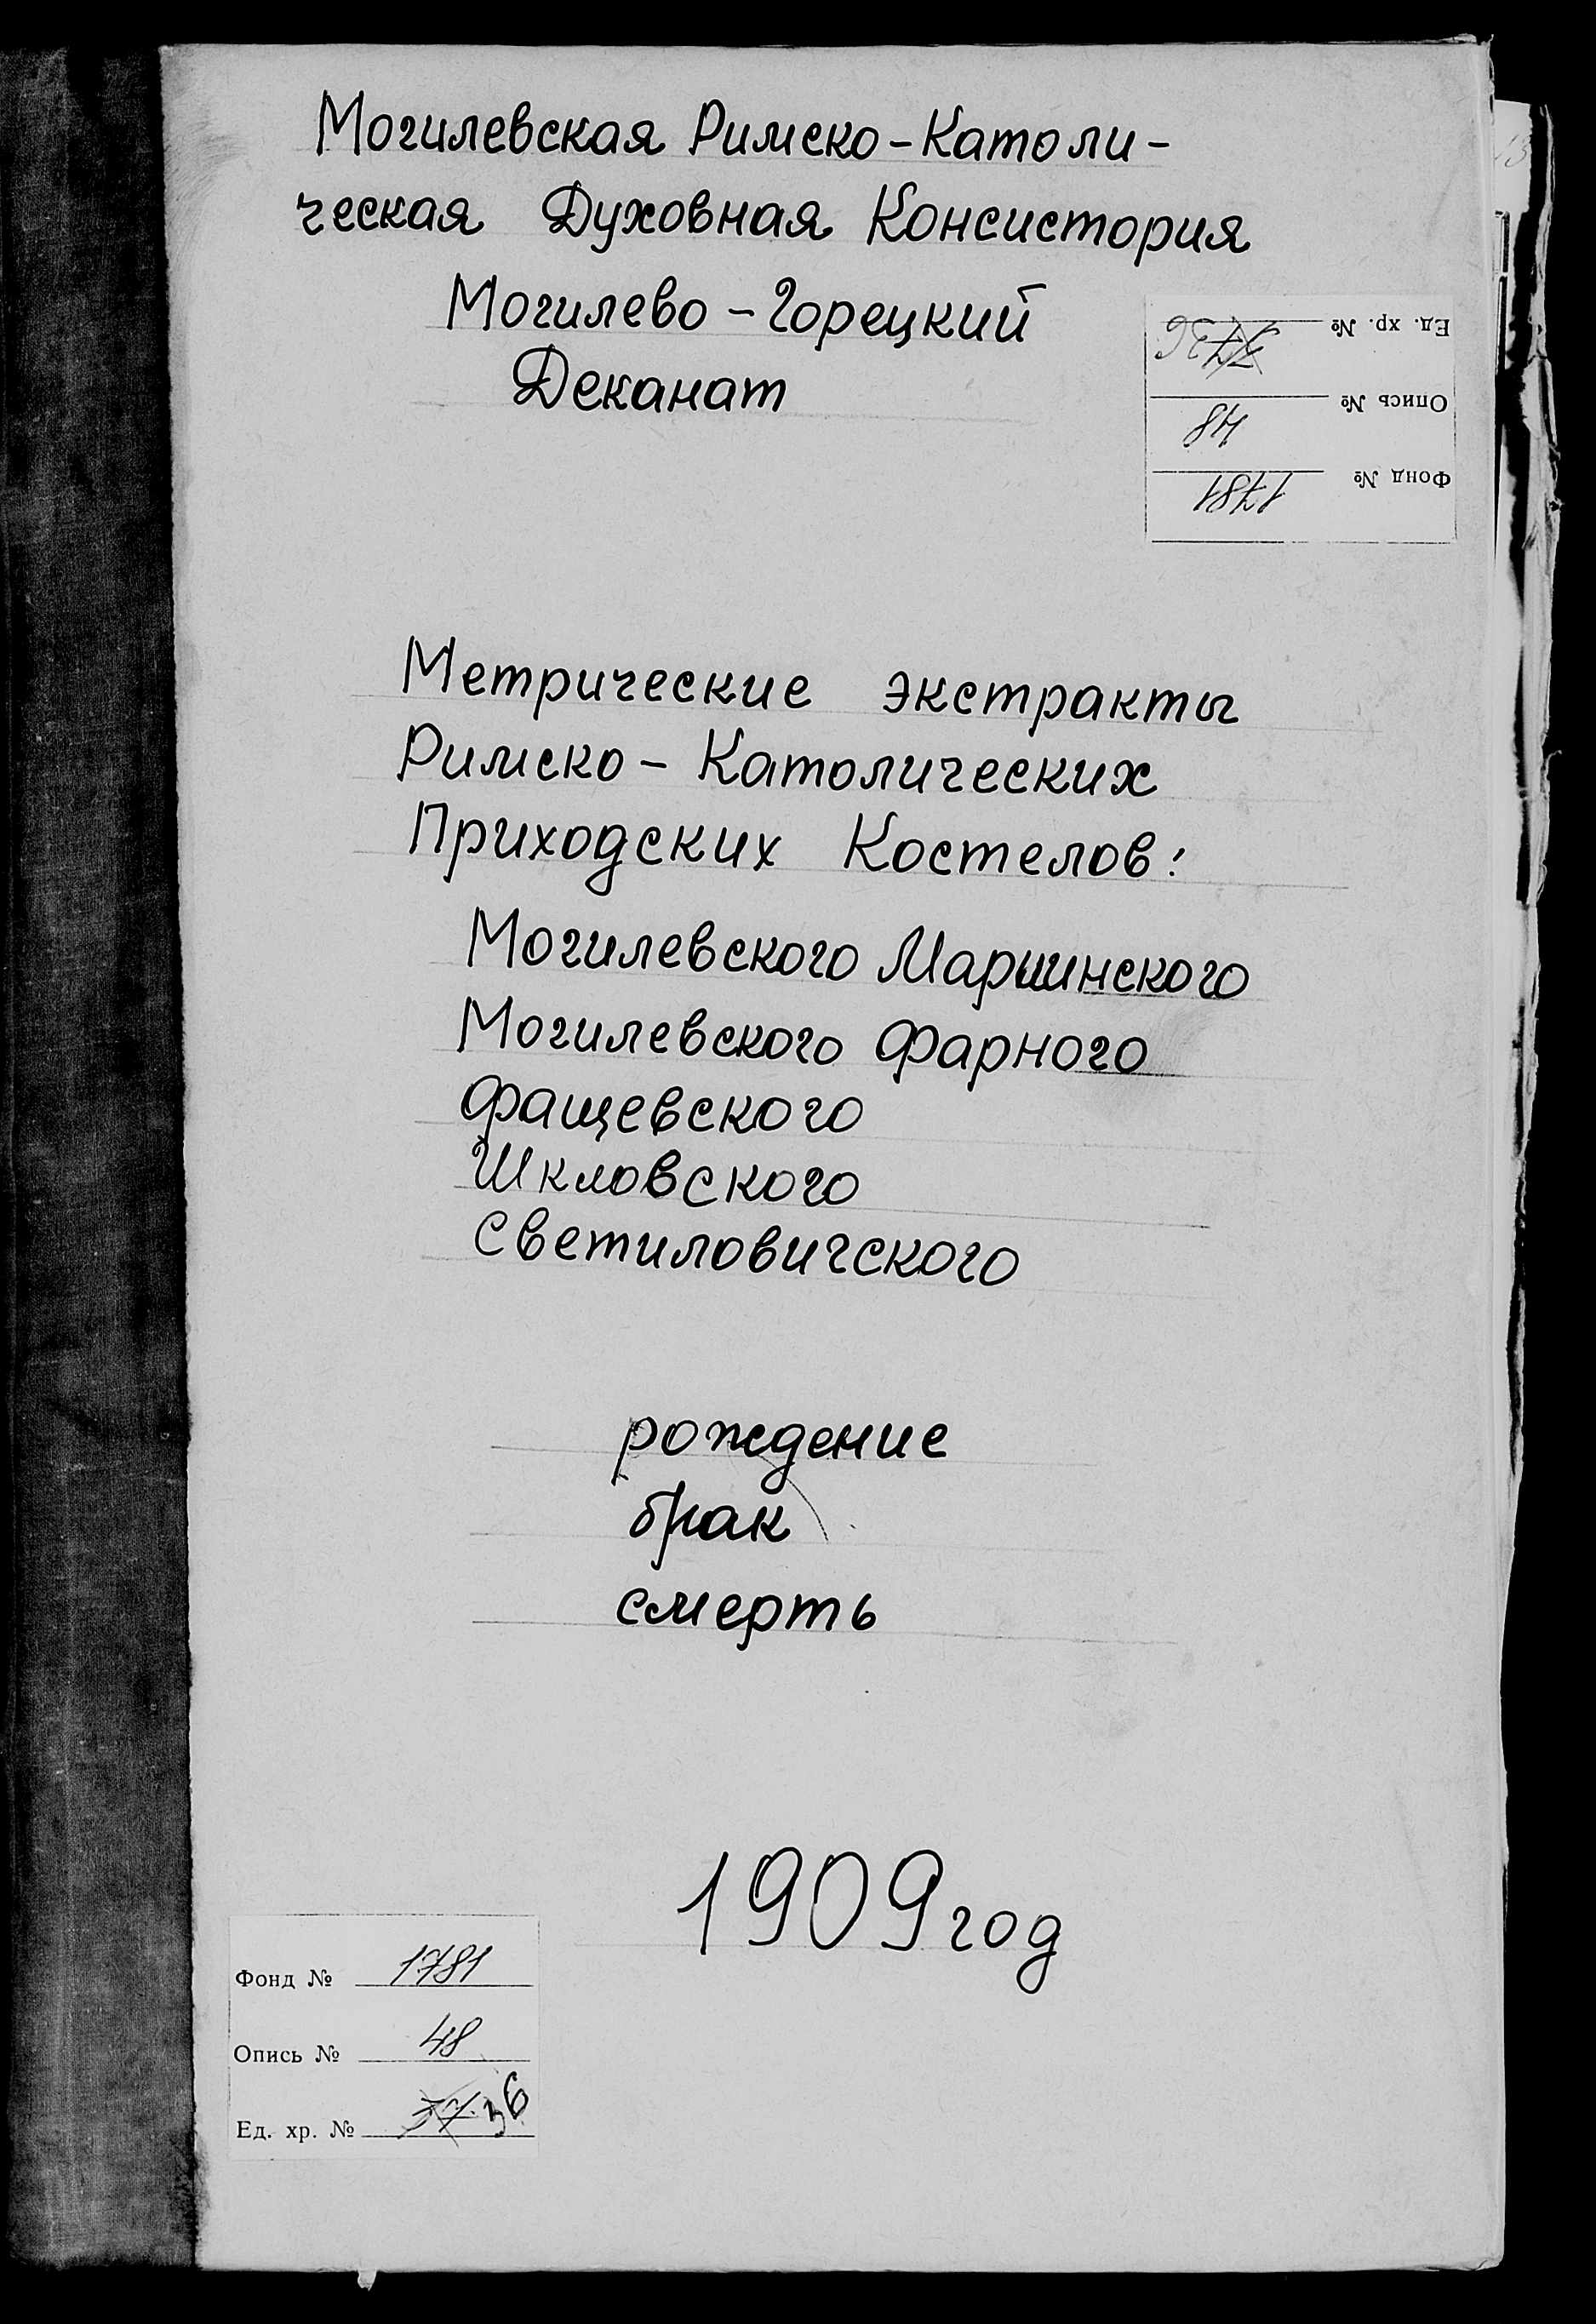 Могилевская Римско-Католи-
ческая Духовная Консистория
Могилево-Горецкий
Деканат
Ед. хр. № 37 36
Опись № 48
Фонд № 1781
Метрические экстракты
Римско-Католических
Приходских Костелов:
Могилевского Маршинского
Могилевского Фарного
Фащевского
Шкловского
Светиловичского
рождение
брак
смерть
1909 год
Фонд № 1781
Опись № 48
Ед. хр. № 37 36